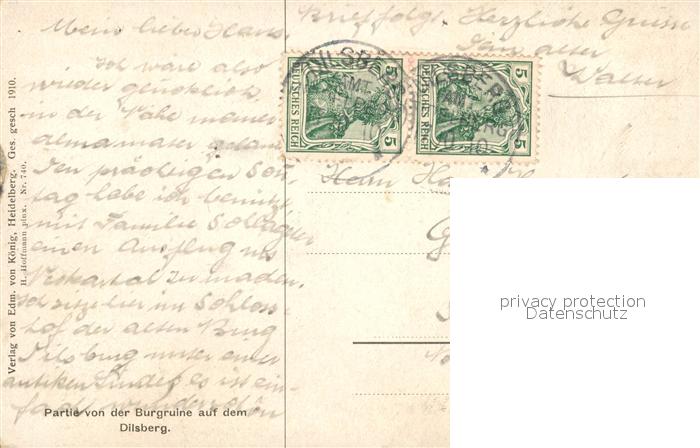 Mein lieber Hans.
Ich wäre also
wieder glücklich
in der Nähe meiner
alma mater gelandet.
Den prächtigen Sonn
tag habe ich benutzt
mit Familie
einen Ausflug ins
Neckartal zu machen.
Ich sitze hier im Schloss-
hof der alten Burg
Dilsburg unter einer
antiken Linde, es ist ein-
fach wunderschön
Brief folgt. Herzliche Grüsse
Dein alter
Walter
DEUTSCHES REICH 5 5
DEUTSCHES REICH 5 5
Herrn
privacy protection
Datenschutz
Verlag von Edm. von König, Heidelberg. Ges. gesch 1910.
H. Hoffmann pinx. Nr. 740.
Partie von der Burgruine auf dem
Dilsberg.